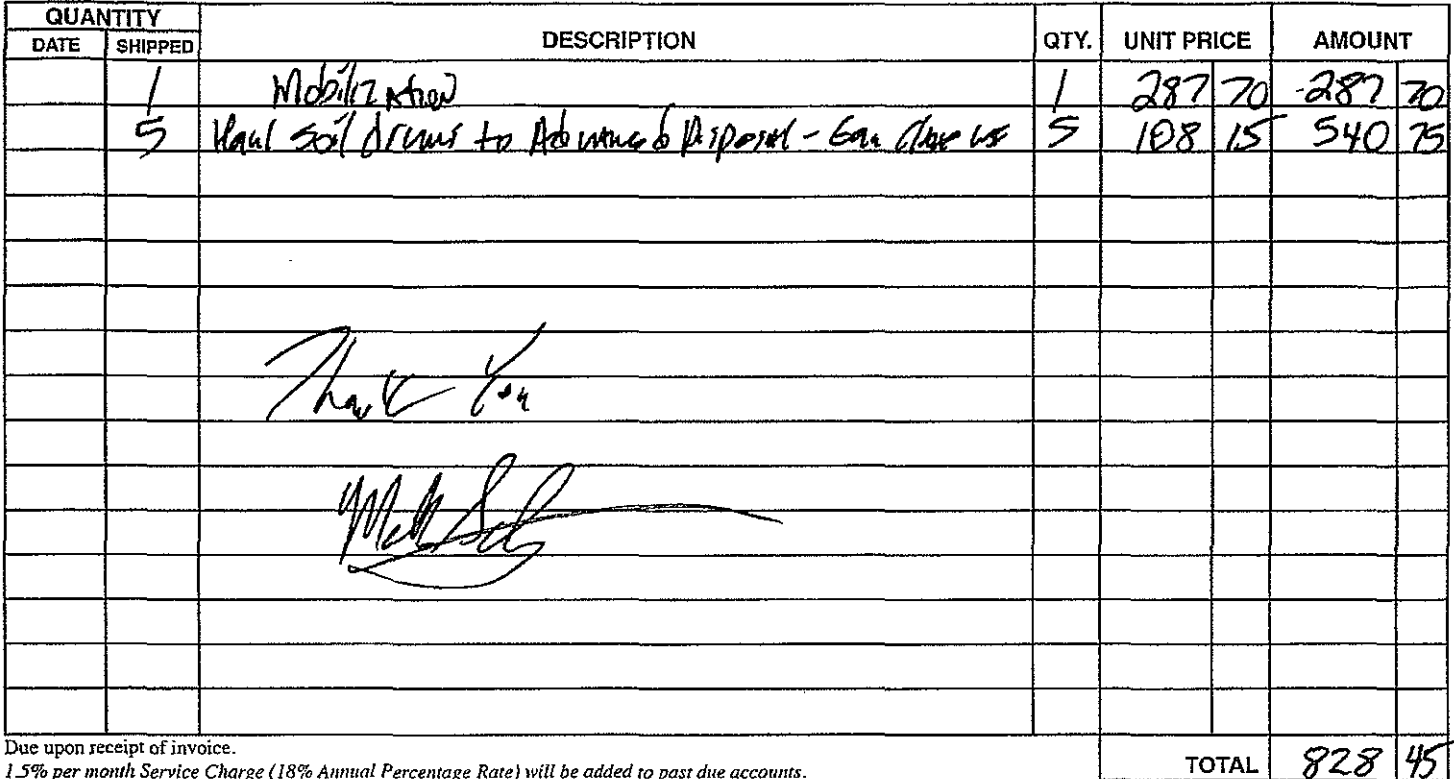 QUANTITY
DATE SHIPPED DESCRIPTION QTY. UNIT PRICE AMOUNT
1 Mobilization 1 287 70 287 70
5 Haul soil drums to Advanced Disposal - Eau Claire WI 5 108 15 540 75
Thank You
Due upon receipt of invoice.
1.5% per month Service Charge (18% Annual Percentage Rate) will be added to past due accounts.
TOTAL 828 45